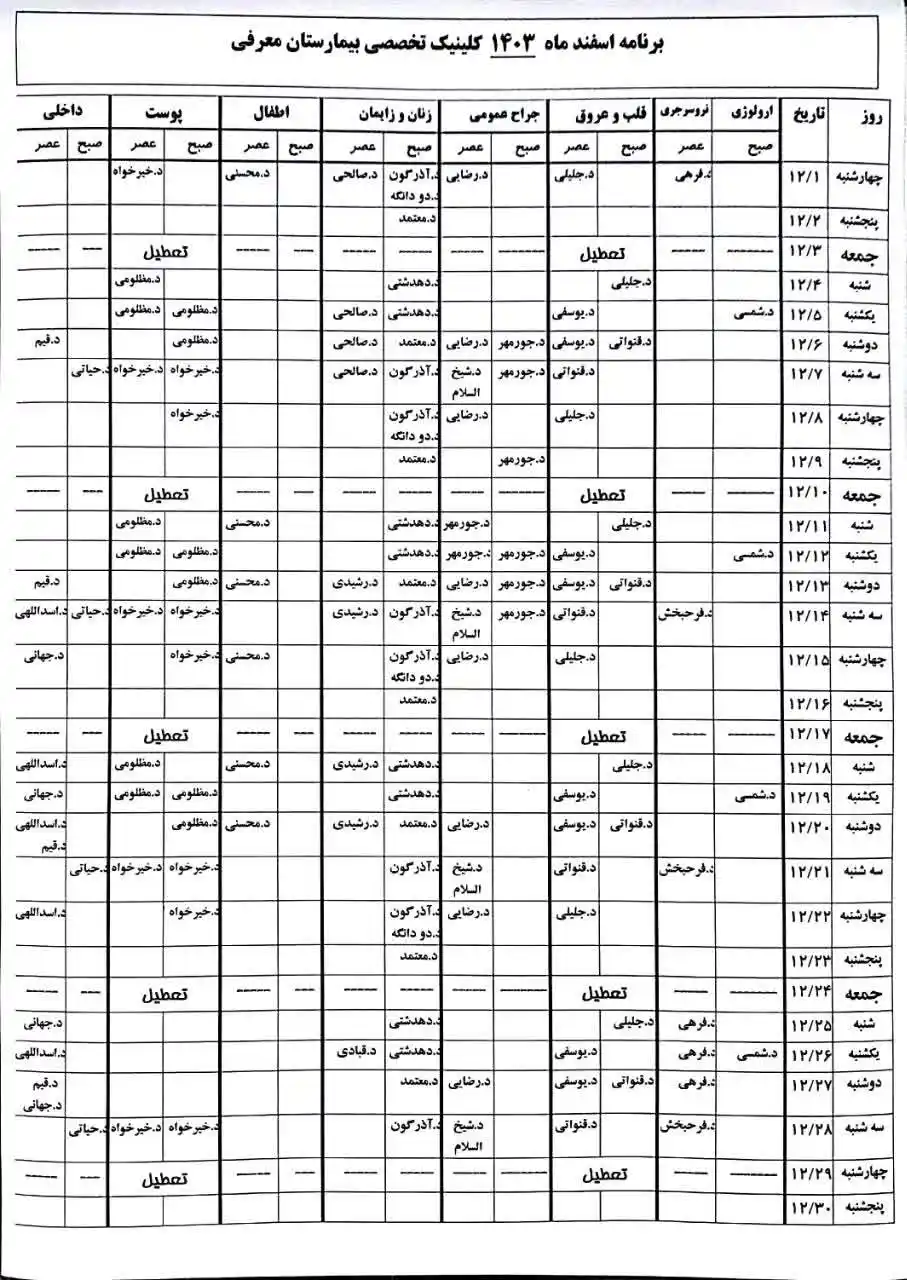 برنامه اسفند ماه ۱۴۰۳ کلینیک تخصصی بیمارستان معرفی
روز تاریخ ارولوژی نروسرجری قلب و عروق جراح عمومی زنان و زایمان اطفال پوست داخلی
صبح عصر صبح عصر صبح عصر صبح عصر صبح عصر صبح عصر صبح عصر
چهارشنبه ۱۲/۱ د.فرهی د.جلیلی د.رضایی د.آذرگون د.صالحی د.محسنی د.خیرخواه
د.دو دانگه
پنجشنبه ۱۲/۲ د.معتمد
جمعه ۱۲/۳ -------- ------ تعطیل -------- ------ ------ ------ ---- ------ تعطیل ---- ------
شنبه ۱۲/۴ د.جلیلی د.دهدشتی د.مظلومی
یکشنبه ۱۲/۵ د.شمسی د.یوسفی د.دهدشتی د.صالحی د.مظلومی د.مظلومی
دوشنبه ۱۲/۶ د.قنواتی د.یوسفی د.جورمهر د.رضایی د.معتمد د.صالحی د.مظلومی د.قیم
سه شنبه ۱۲/۷ د.قنواتی د.جورمهر د.شیخ د.آذرگون د.صالحی د.خیرخواه د.خیرخواه د.حیاتی
السلام
چهارشنبه ۱۲/۸ د.جلیلی د.رضایی د.آذرگون د.خیرخواه
د.دو دانگه
پنجشنبه ۱۲/۹ د.جورمهر د.معتمد
جمعه ۱۲/۱۰ -------- ------ تعطیل -------- ------ ------ ------ ---- ------ تعطیل ---- ------
شنبه ۱۲/۱۱ د.جلیلی د.جورمهر د.دهدشتی د.محسنی د.مظلومی
یکشنبه ۱۲/۱۲ د.شمسی د.یوسفی د.جورمهر د.جورمهر د.دهدشتی د.مظلومی د.مظلومی
دوشنبه ۱۲/۱۳ د.قنواتی د.یوسفی د.جورمهر د.رضایی د.معتمد د.رشیدی د.محسنی د.مظلومی د.قیم
سه شنبه ۱۲/۱۴ د.فرحبخش د.قنواتی د.جورمهر د.شیخ د.آذرگون د.رشیدی د.خیرخواه د.خیرخواه د.حیاتی د.اسداللهی
السلام
چهارشنبه ۱۲/۱۵ د.جلیلی د.رضایی د.آذرگون د.محسنی د.خیرخواه د.جهانی
د.دو دانگه
پنجشنبه ۱۲/۱۶ د.معتمد
جمعه ۱۲/۱۷ -------- ------ تعطیل -------- ------ ------ ------ ---- ------ تعطیل ---- ------
شنبه ۱۲/۱۸ د.جلیلی د.دهدشتی د.رشیدی د.محسنی د.مظلومی د.اسداللهی
یکشنبه ۱۲/۱۹ د.شمسی د.یوسفی د.دهدشتی د.مظلومی د.مظلومی د.جهانی
دوشنبه ۱۲/۲۰ د.قنواتی د.یوسفی د.رضایی د.معتمد د.رشیدی د.محسنی د.مظلومی د.اسداللهی
د.قیم
سه شنبه ۱۲/۲۱ د.فرحبخش د.قنواتی د.شیخ د.آذرگون د.خیرخواه د.خیرخواه د.حیاتی
السلام
چهارشنبه ۱۲/۲۲ د.جلیلی د.رضایی د.آذرگون د.خیرخواه د.اسداللهی
د.دو دانگه
پنجشنبه ۱۲/۲۳ د.معتمد
جمعه ۱۲/۲۴ -------- ------ تعطیل -------- ------ ------ ------ ---- ------ تعطیل ---- ------
شنبه ۱۲/۲۵ د.فرهی د.جلیلی د.دهدشتی د.جهانی
یکشنبه ۱۲/۲۶ د.شمسی د.فرهی د.یوسفی د.دهدشتی د.قبادی د.اسداللهی
دوشنبه ۱۲/۲۷ د.فرهی د.قنواتی د.یوسفی د.رضایی د.معتمد د.قیم
د.جهانی
سه شنبه ۱۲/۲۸ د.فرحبخش د.قنواتی د.شیخ د.آذرگون د.خیرخواه د.خیرخواه د.حیاتی
السلام
چهارشنبه ۱۲/۲۹ -------- ------ تعطیل -------- ------ ------ ------ ---- ------ تعطیل ---- ------
پنجشنبه ۱۲/۳۰